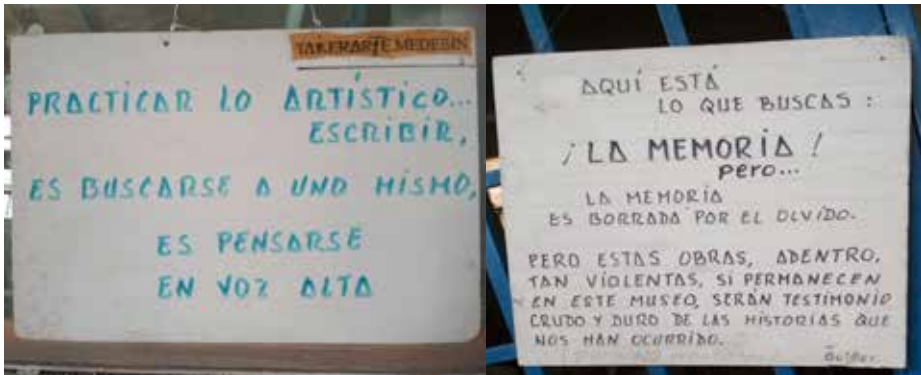 TALLERARTE MEDELLÍN
PRACTICAR LO ARTÍSTICO...
ESCRIBIR,
ES BUSCARSE A UNO MISMO,
ES PENSARSE
EN VOZ ALTA
AQUÍ ESTÁ
LO QUE BUSCAS:
¡LA MEMORIA!
pero...
LA MEMORIA
ES BORRADA POR EL OLVIDO.
PERO ESTAS OBRAS, ADENTRO,
TAN VIOLENTAS, SI PERMANECEN
EN ESTE MUSEO, SERÁN TESTIMONIO
CRUDO Y DURO DE LAS HISTORIAS QUE
NOS HAN OCURRIDO.